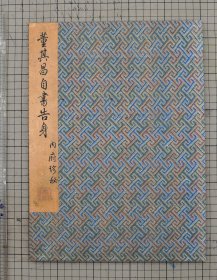 董其昌自書告身
內府珍秘